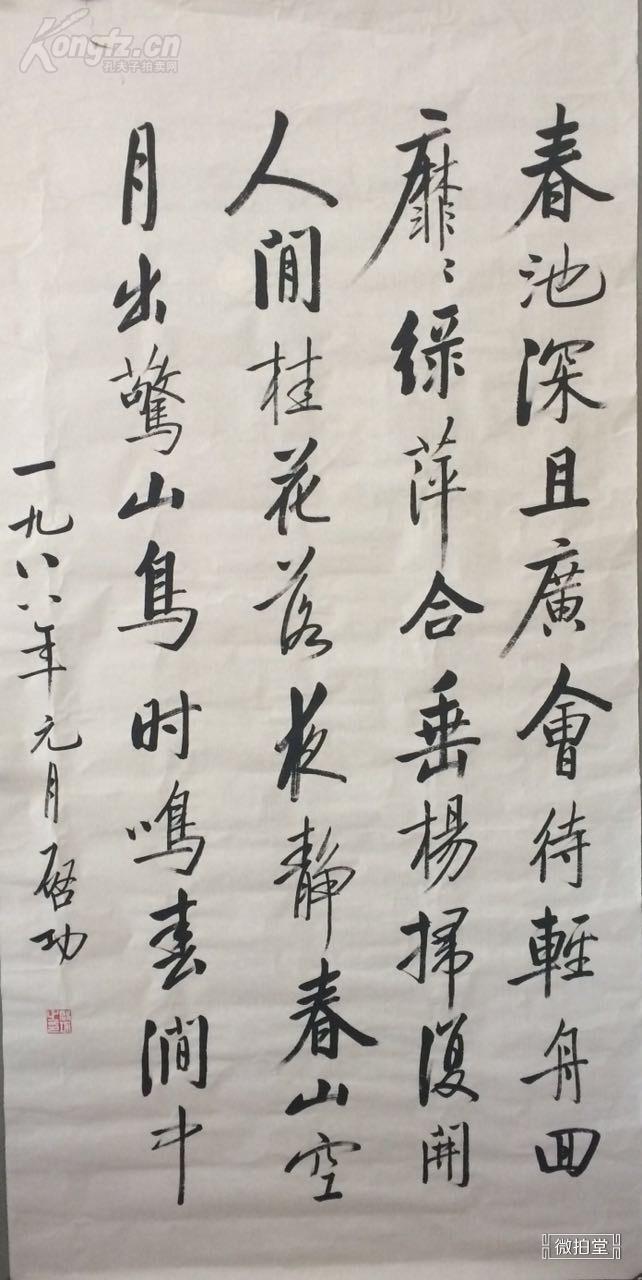 春池深且廣會待輕舟回
靡〻綠萍合垂楊掃復開
人閒桂花落夜靜春山空
月出驚山鳥时鳴春澗中
一九八八年元月啓功
Kongfz.cn
孔夫子拍卖网
微拍堂